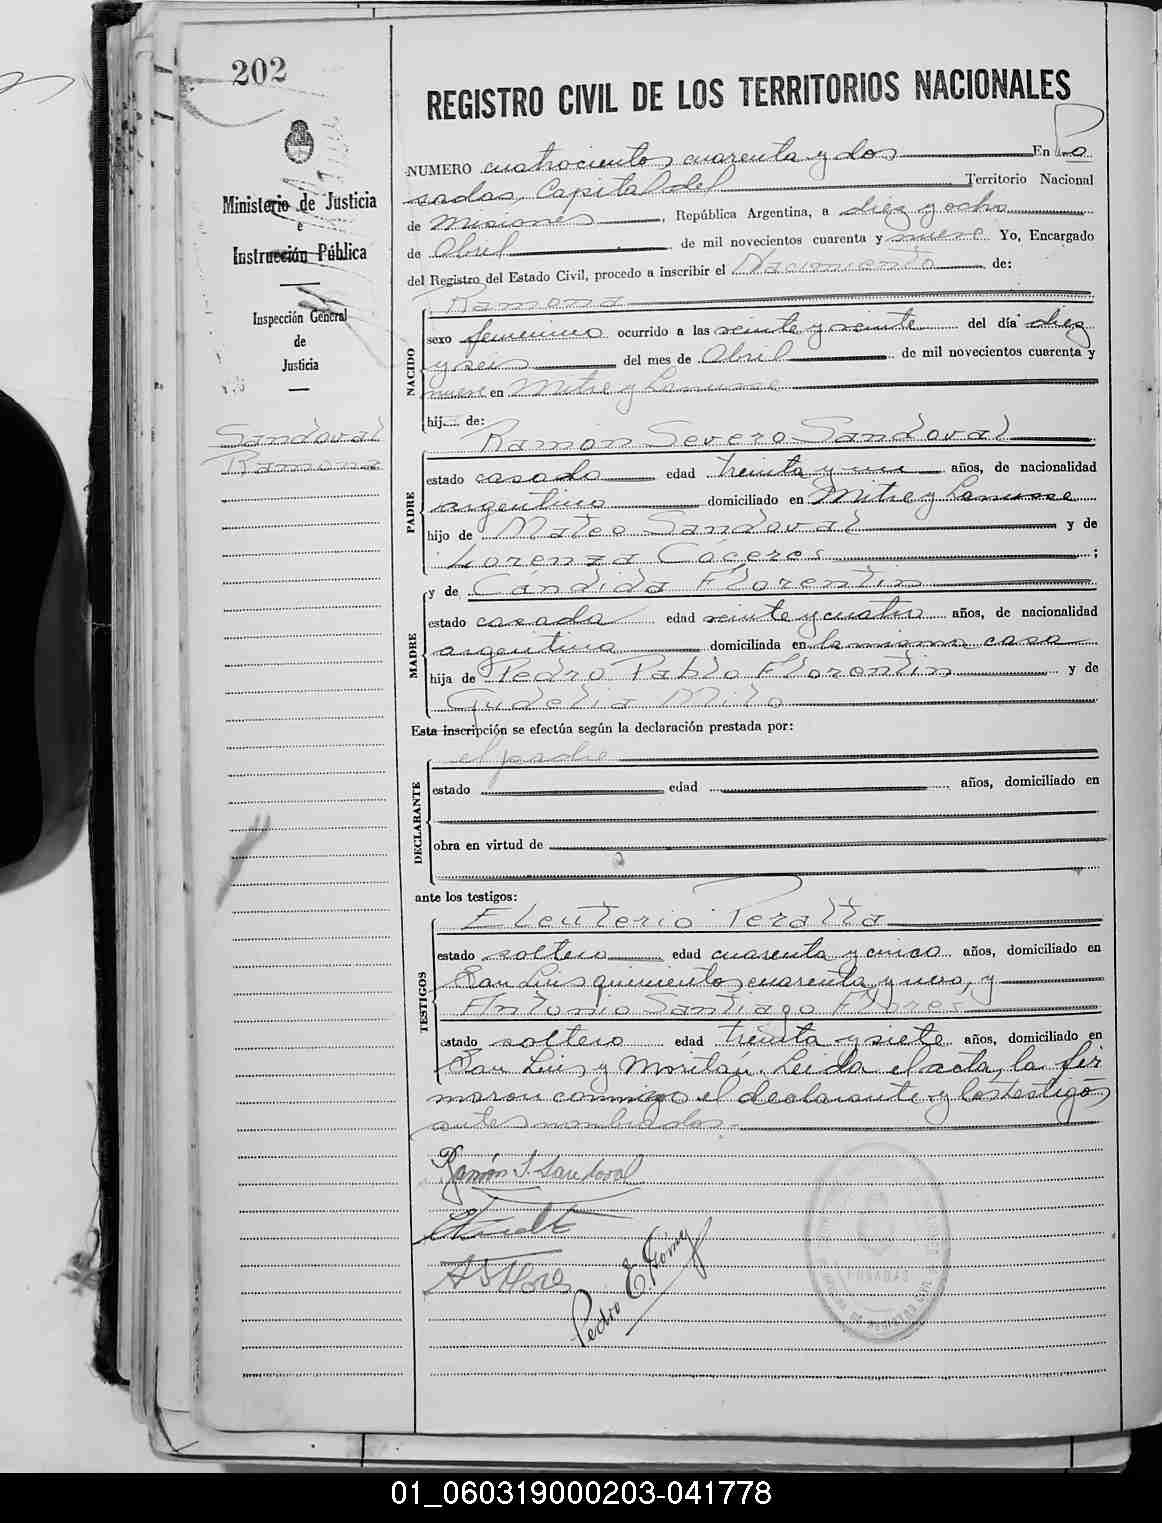 202
Ministerio de Justicia
e
Instrucción Pública
Inspección General
de
Justicia
Sandoval
Ramona
REGISTRO CIVIL DE LOS TERRITORIOS NACIONALES
NUMERO cuatrocientos cuarenta y dos En Po
sadas, Capital del Territorio Nacional
de Misiones, República Argentina, a diez y ocho
de Abril de mil novecientos cuarenta y nueve Yo, Encargado
del Registro del Estado Civil, procedo a inscribir el Nacimiento de:
NACIDO
Ramona
sexo femenino ocurrido a las veinte y veinte del día diez
y seis del mes de Abril de mil novecientos cuarenta y
nueve en Mitre y Lanusse
hij de:
Ramón Severo Sandoval
PADRE
estado casado edad treinta y un años, de nacionalidad
argentino domiciliado en Mitre y Lanusse
hijo de Mateo Sandoval y de
Lorenza Cáceres ;
y de Cándida Florentin
MADRE
estado casada edad veinte y cuatro años, de nacionalidad
argentina domiciliada en la misma casa
hija de Pedro Pablo Florentin y de
Gudelia Miño
Esta inscripción se efectúa según la declaración prestada por:
el padre
DECLARANTE
estado edad años, domiciliado en
obra en virtud de
ante los testigos:
Eleuterio Peralta
TESTIGOS
estado soltero edad cuarenta y cinco años, domiciliado en
San Luis quinientos cuarenta y uno, y
Antonio Santiago Flores
estado soltero edad treinta y siete años, domiciliado en
San Luis y Moritán. Leida el acta, la fir
maron conmigo el declarante y los testigos
antes nombrados.
Ramón S. Sandoval
A S Flores
Pedro E. Gómez
POSADAS
01_060319000203-041778